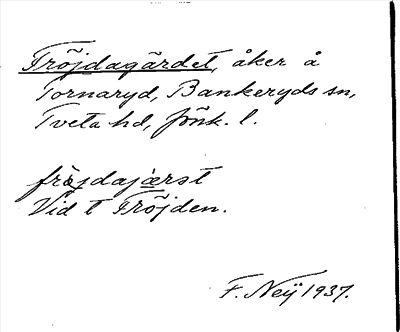 Fröjdagärdet, åker å
Tornaryd, Bankeryds sn,
Tveta hd, Jönk. l.
fröjdajærst
Vid t Fröjden.
F. Neÿ 1937.